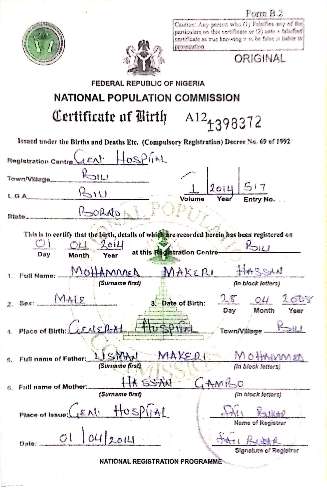 Form B.2
Caution: Any person who (1) falsifies any of the
particulars on this certificate or (2) uses a falsified
certificate as true knowing it to be false is liable to
prosecution
ORIGINAL
FEDERAL REPUBLIC OF NIGERIA
NATIONAL POPULATION COMMISSION
Certificate of Birth A12 1398372
Issued under the Births and Deaths Etc. (Compulsory Registration) Decree No. 69 of 1992
Registration Centre Gen Hospital
Town/Village
L.G.A.
State BORNO
1 2014 517
Volume Year Entry No.
This is to certify that the birth, details of which are recorded herein has been registered on
01 04 2014 at this Registration Centre
Day Month Year
1. Full Name: MOHAMMED MAKERI HASSAN
(Surname first) (in block letters)
2. Sex: MALE 3. Date of Birth: 28 04
Day Month Year
4. Place of Birth: GENERAL HOSPITAL Town/Village
5. Full name of Father: USMAN MAKERI MOHAMMED
(Surname first) (in block letters)
6. Full name of Mother: HASSAN GAMBO
(Surname first) (in block letters)
Place of Issue: Gen HOSPITAL
Name of Registrar
Date: 01/04/2014
Signature of Registrar
NATIONAL REGISTRATION PROGRAMME